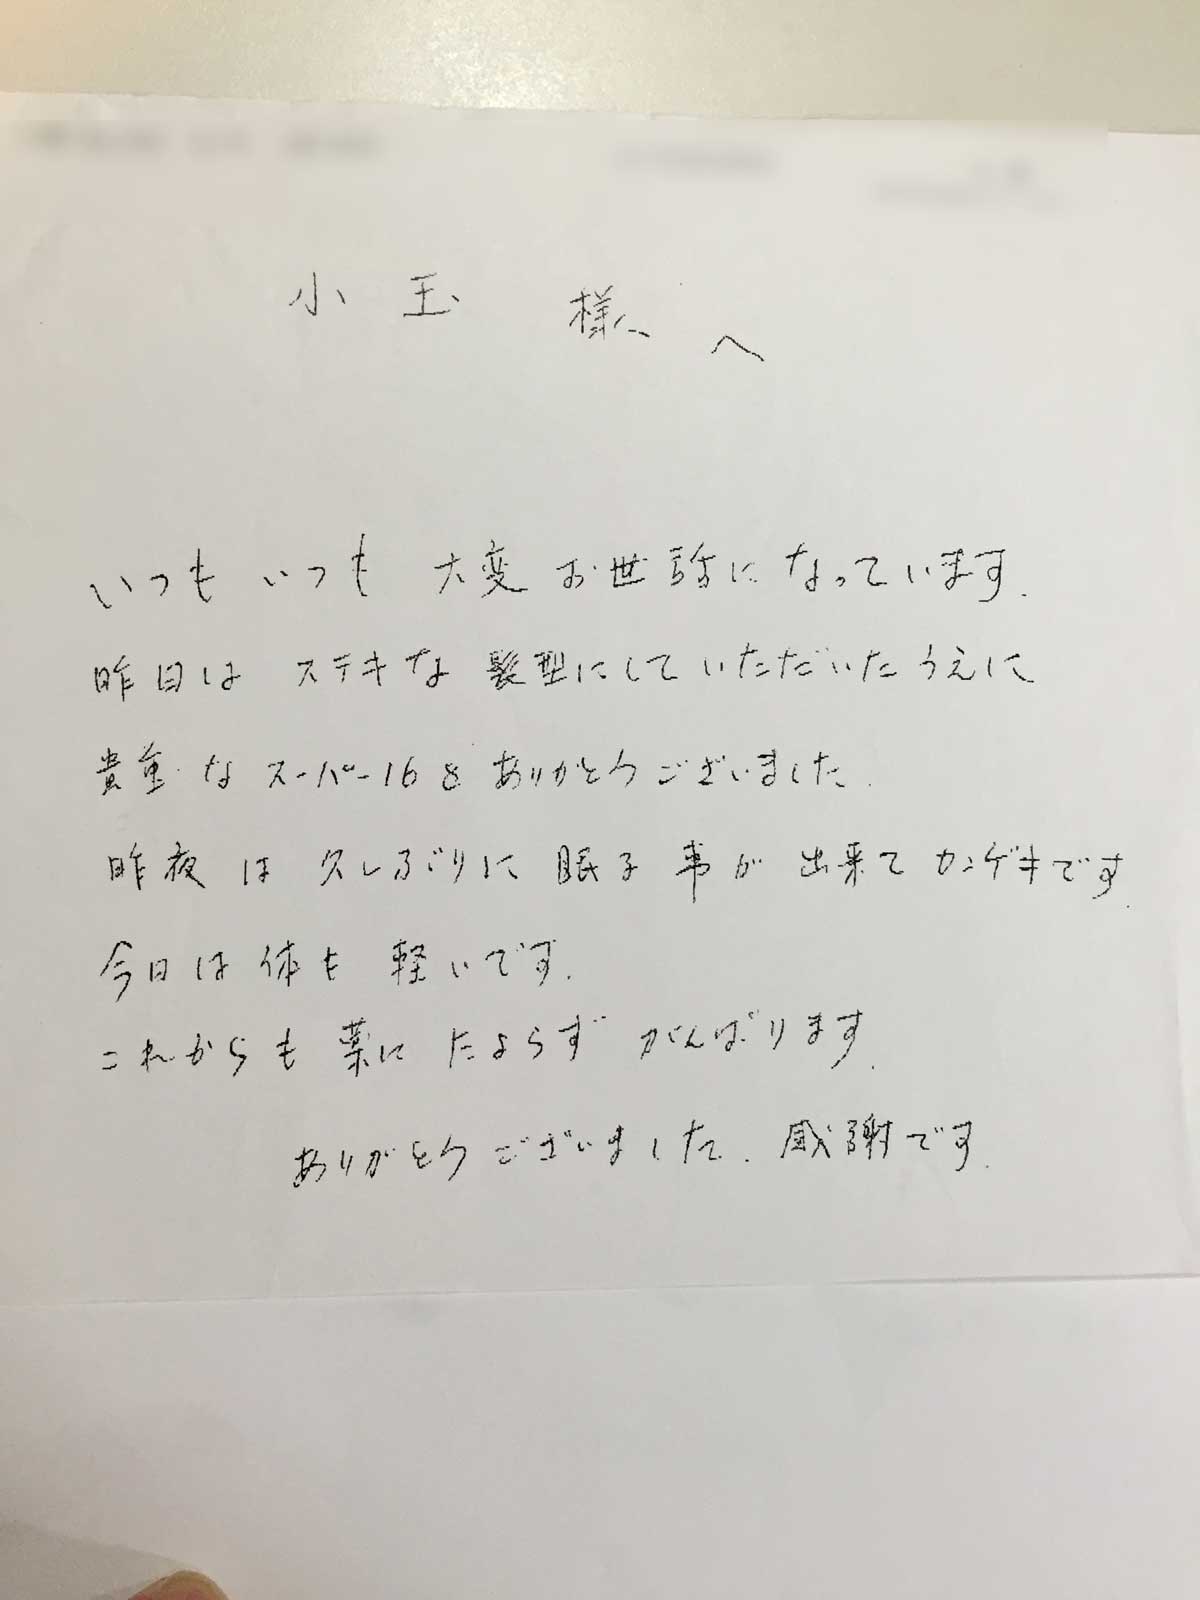 小玉 様へ
いつもいつも 大変お世話になっています.
昨日は ステキな 髪型にしていただいたうえに
貴重なスーパー16をありがとうございました.
昨夜は 久しぶりに 眠る事が 出来て カンゲキです.
今日は体も 軽いです.
これからも 薬に たよらず がんばります.
ありがとうございました. 感謝です.